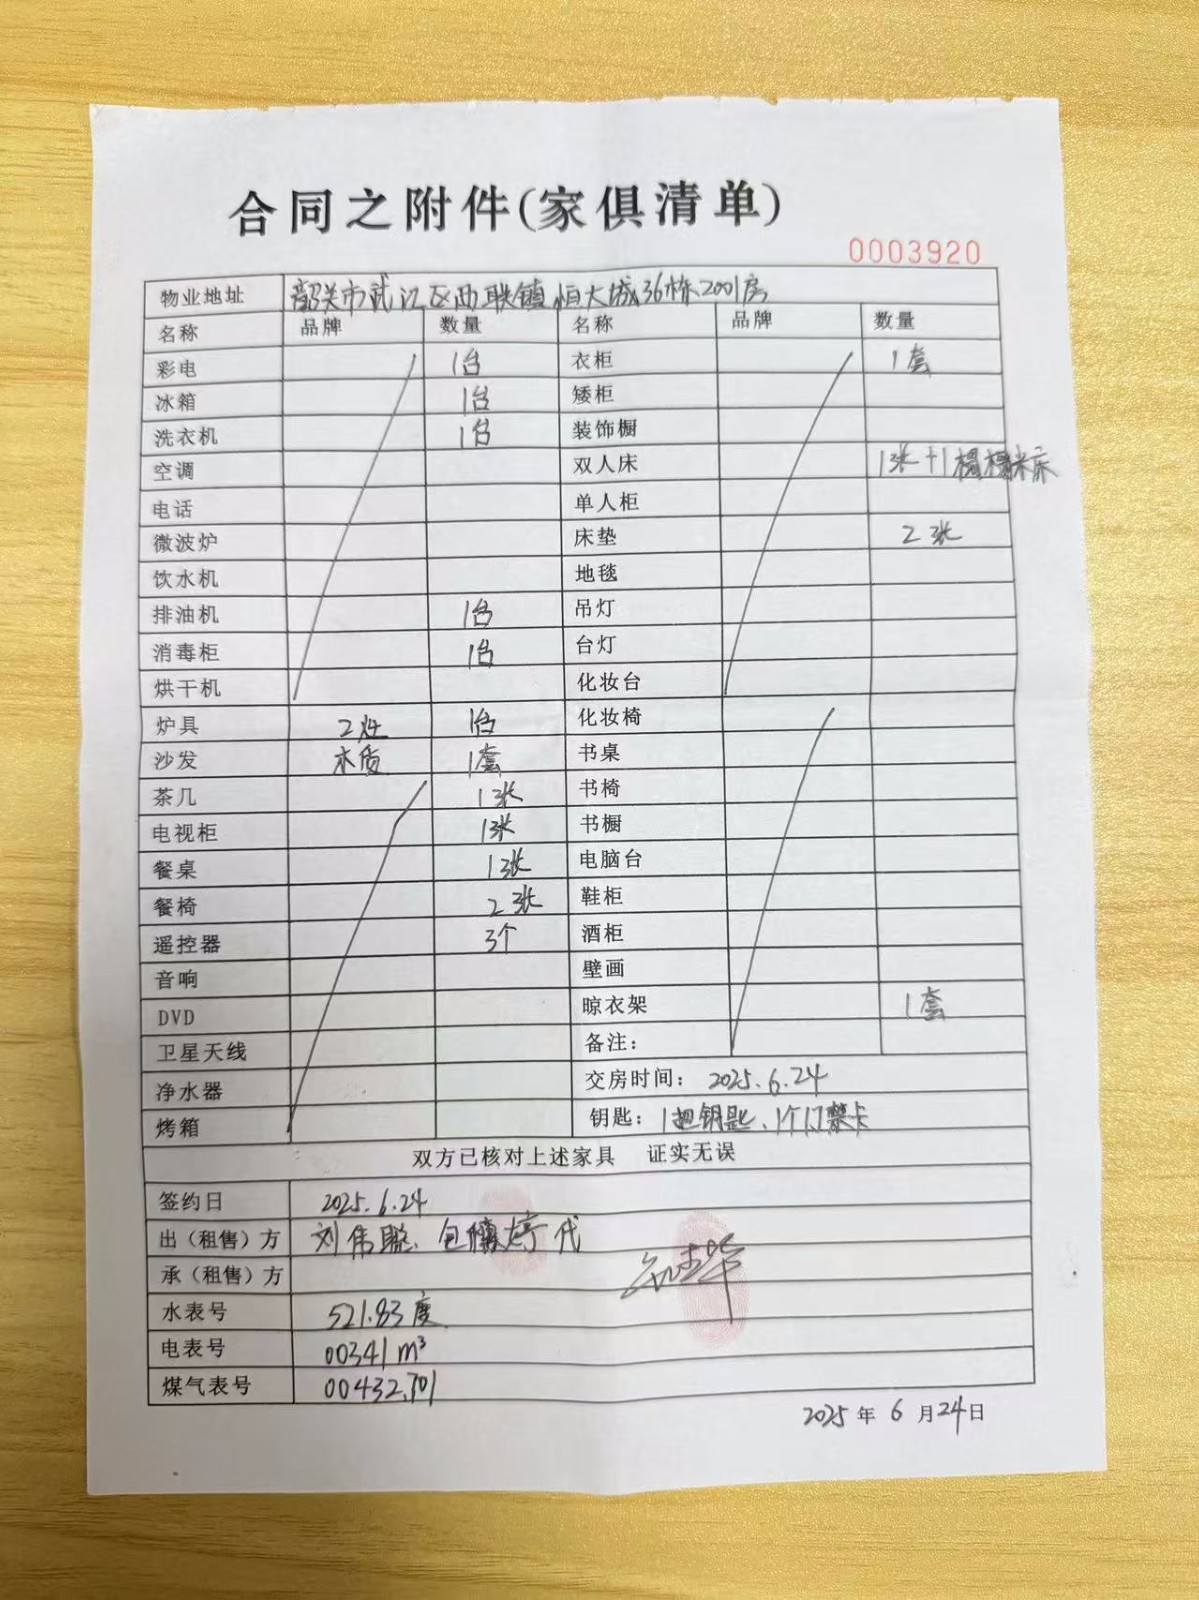 合同之附件(家俱清单)
0003920
物业地址 韶关市武江区西联镇恒大城36栋2001房
名称 品牌 数量 名称 品牌 数量
彩电 1台 衣柜 1套
冰箱 1台 矮柜
洗衣机 1台 装饰橱
空调 双人床 1张+1榻榻米床
电话 单人柜
微波炉 床垫 2张
饮水机 地毯
排油机 1台 吊灯
消毒柜 1台 台灯
烘干机 化妆台
炉具 2灶 1台 化妆椅
沙发 木质 1套 书桌
茶几 1张 书椅
电视柜 1张 书橱
餐桌 1张 电脑台
餐椅 2张 鞋柜
遥控器 3个 酒柜
音响 壁画
DVD 晾衣架 1套
卫星天线 备注:
净水器 交房时间: 2025.6.24
烤箱 钥匙: 1把钥匙、1个门禁卡
双方已核对上述家具 证实无误
签约日 2025.6.24
出(租售)方 刘伟聪、包 婷代
承(租售)方
水表号 521.83度
电表号 00341m³
煤气表号 00432.701
2025年6月24日